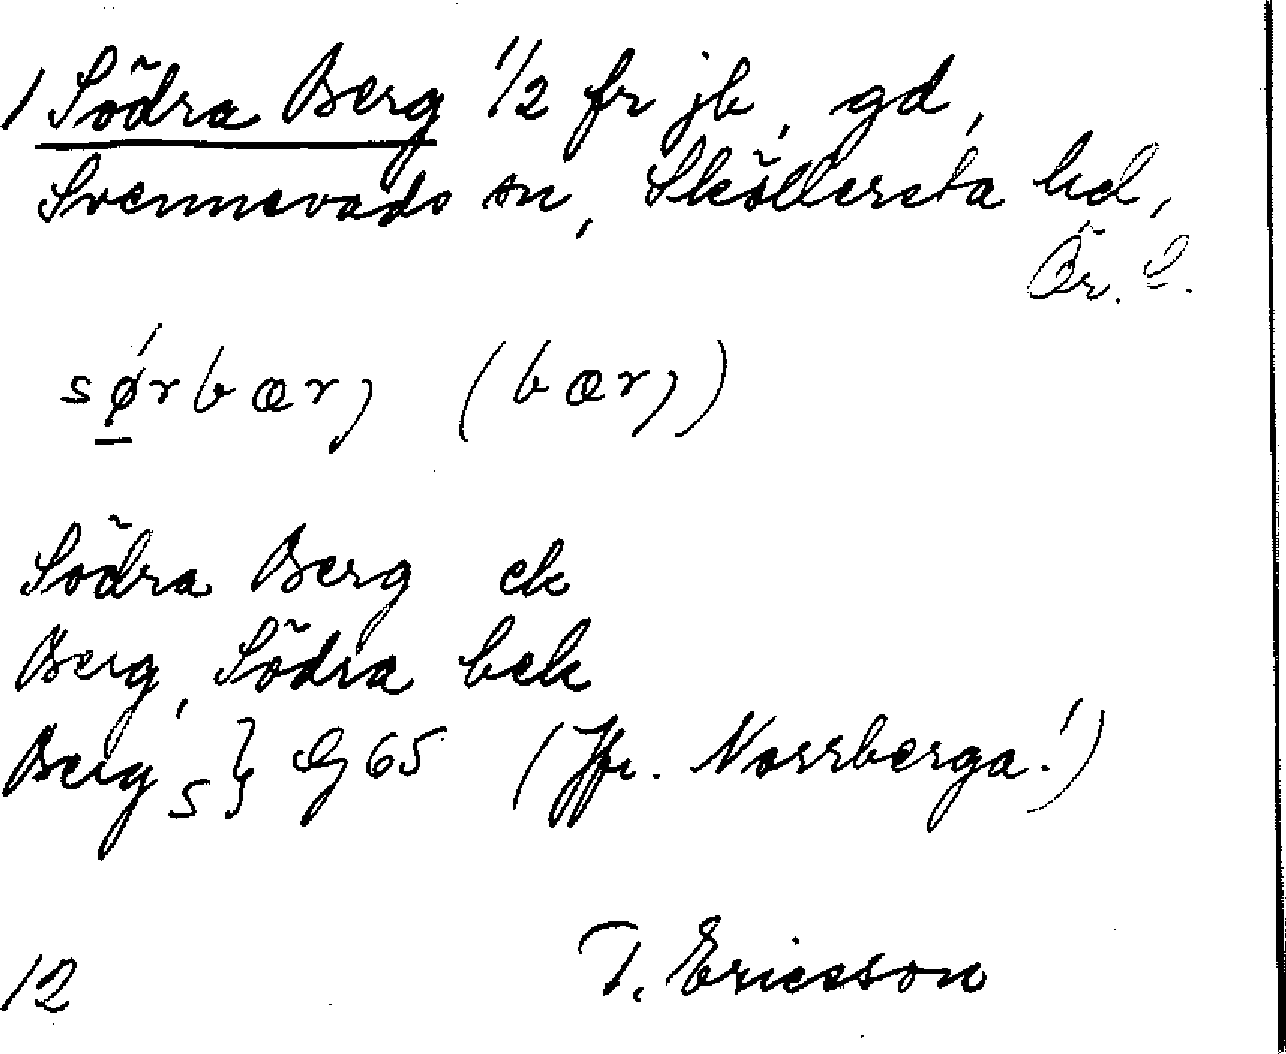 1 Södra Berg 1/2 fr jb, gd,
Svennevads sn, Sköllersta hd,
Ör. l.
sørbær, (bær,)
Södra Berg ek
Berg, Södra bek
Berg S } G 65 (Jfr. Norrberga!)
12 T. Ericsson